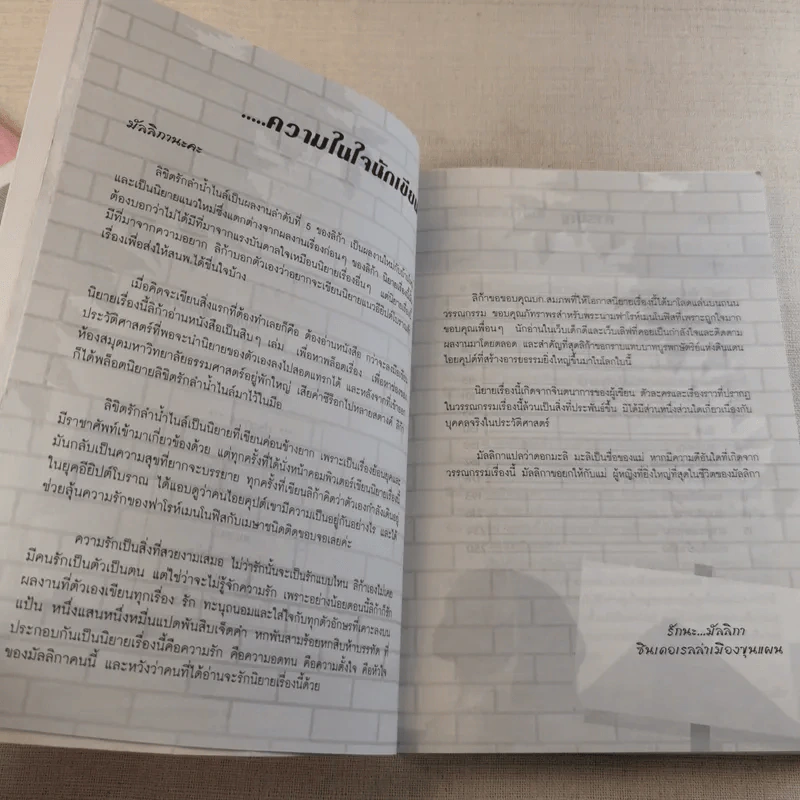 .....ความในใจนักเขียน
มัลลิกานะคะ
ลิขิตรักลำน้ำไนล์เป็นผลงานลำดับที่ 5 ของลิก้า เป็นผลงานใหม่
และเป็นนิยายแนวใหม่ซึ่งแตกต่างจากผลงานเรื่องก่อนๆ ของลิก้า นิยายเรื่องนี้
ต้องบอกว่าไม่ได้มีที่มาจากแรงบันดาลใจเหมือนนิยายเรื่องอื่นๆ แต่นิยายเรื่องนี้
มีที่มาจากความอยาก ลิก้าบอกตัวเองว่าอยากจะเขียนนิยายแนวอียิปต์โบราณ
เรื่องเพื่อส่งให้สนพ.ได้ชื่นใจบ้าง
เมื่อคิดจะเขียนสิ่งแรกที่ต้องทำเลยก็คือ ต้องอ่านหนังสือ กว่าจะลงมือเขียน
นิยายเรื่องนี้ลิก้าอ่านหนังสือเป็นสิบๆ เล่ม เพื่อหาพล็อตเรื่อง เพื่อหาช่อง
ประวัติศาสตร์ที่พอจะนำนิยายของตัวเองลงไปสอดแทรกได้ และหลังจากที่เข้าออก
ห้องสมุดมหาวิทยาลัยธรรมศาสตร์อยู่พักใหญ่ เสียค่าซีร็อกไปหลายสตางค์ ลิก้า
ก็ได้พล็อตนิยายลิขิตรักลำน้ำไนล์มาไว้ในมือ
ลิขิตรักลำน้ำไนล์เป็นนิยายที่เขียนค่อนข้างยาก เพราะเป็นเรื่องย้อนยุคและ
มีราชาศัพท์เข้ามาเกี่ยวข้องด้วย แต่ทุกครั้งที่ได้นั่งหน้าคอมพิวเตอร์เขียนนิยายเรื่องนี้
มันกลับเป็นความสุขที่ยากจะบรรยาย ทุกครั้งที่เขียนลิก้าคิดว่าตัวเองกำลังเดินอยู่
ในยุคอียิปต์โบราณ ได้แอบดูว่าคนไอยคุปต์เขามีความเป็นอยู่กันอย่างไร และได้
ช่วยลุ้นความรักของฟาโรห์เมนโนฟิสกับเมษาชนิดติดขอบจอเลยค่ะ
ความรักเป็นสิ่งที่สวยงามเสมอ ไม่ว่ารักนั้นจะเป็นรักแบบไหน ลิก้าเองไม่เคย
มีคนรักเป็นตัวเป็นตน แต่ใช่ว่าจะไม่รู้จักความรัก เพราะอย่างน้อยตอนนี้ลิก้าก็รัก
ผลงานที่ตัวเองเขียนทุกเรื่อง รัก ทะนุถนอมและใส่ใจกับทุกตัวอักษรที่เคาะลงบน
แป้น หนึ่งแสนหนึ่งหมื่นแปดพันสิบเจ็ดคำ หกพันสามร้อยหกสิบห้าบรรทัด ที่
ประกอบกันเป็นนิยายเรื่องนี้คือความรัก คือความอดทน คือความตั้งใจ คือหัวใจ
ของมัลลิกาคนนี้ และหวังว่าคนที่ได้อ่านจะรักนิยายเรื่องนี้ด้วย
ลิก้าขอขอบคุณบก.สมภพที่ให้โอกาสนิยายเรื่องนี้ได้มาโลดแล่นบนถนน
วรรณกรรม ขอบคุณภัทราพรสำหรับพระนามฟาโรห์เมนโนฟิสที่เพราะถูกใจมาก
ขอบคุณเพื่อนๆ นักอ่านในเว็บเด็กดีและเว็บเลิฟที่คอยเป็นกำลังใจและติดตาม
ผลงานมาโดยตลอด และสำคัญที่สุดลิก้าขอกราบแทบบาทบูรพกษัตริย์แห่งดินแดน
ไอยคุปต์ที่สร้างอารยธรรมยิ่งใหญ่ขึ้นมาในโลกใบนี้
นิยายเรื่องนี้เกิดจากจินตนาการของผู้เขียน ตัวละครและเรื่องราวที่ปรากฏ
ในวรรณกรรมเรื่องนี้ล้วนเป็นสิ่งที่ประพันธ์ขึ้น มิได้มีส่วนหนึ่งส่วนใดเกี่ยวเนื่องกับ
บุคคลจริงในประวัติศาสตร์
มัลลิกาแปลว่าดอกมะลิ มะลิเป็นชื่อของแม่ หากมีความดีอันใดที่เกิดจาก
วรรณกรรมเรื่องนี้ มัลลิกาขอยกให้กับแม่ ผู้หญิงที่ยิ่งใหญ่ที่สุดในชีวิตของมัลลิกา
รักนะ...มัลลิกา
ซินเดอเรลล่าเมืองขุนแผน